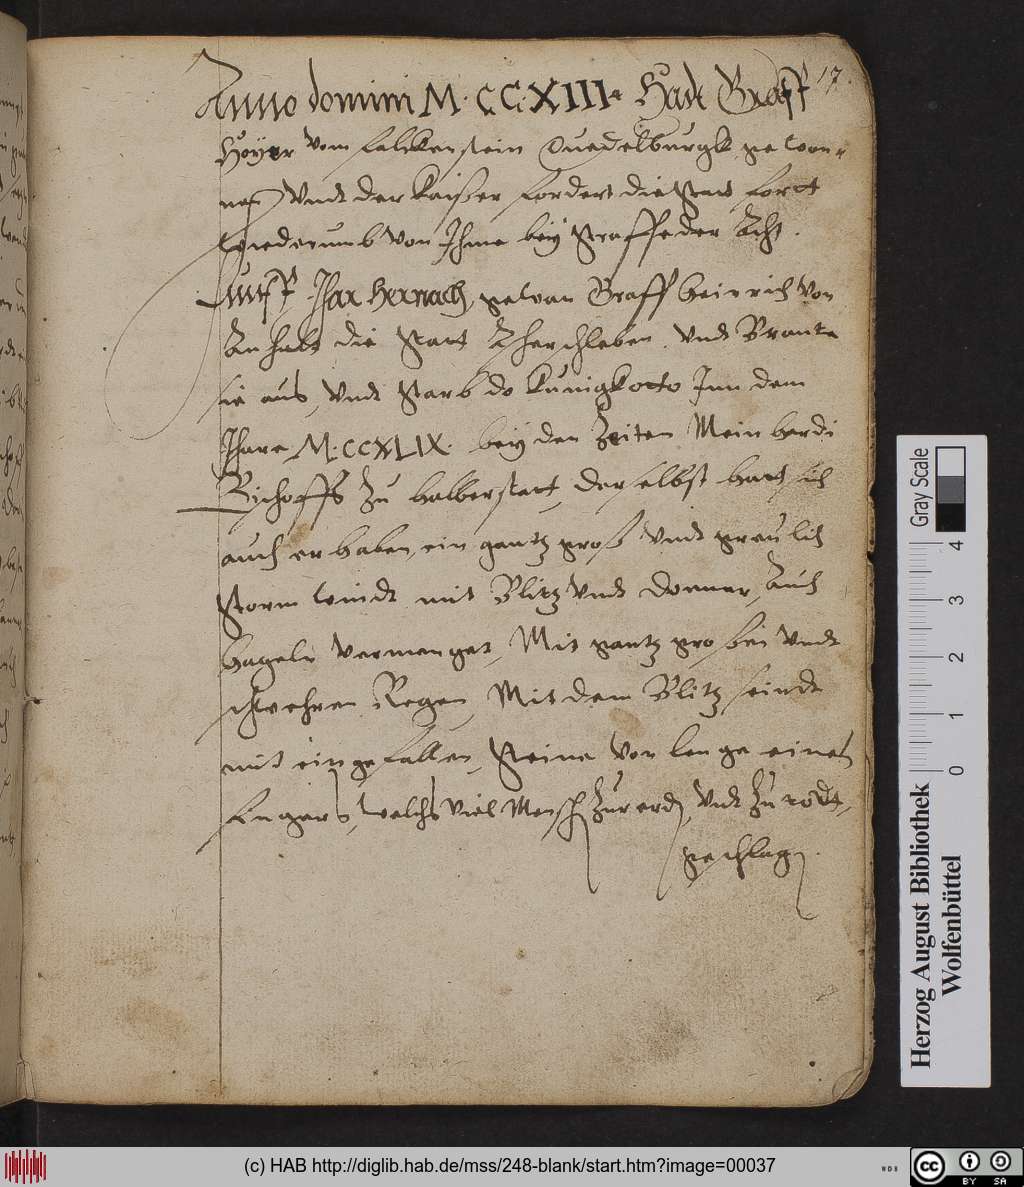 17.
Anno domini M. CC. XIII. Hatt Graff
Hoyer vom falckenstein Quedelburgk gewon-
nen Vndt der Kaißer fordert die Statt fortt
Wiederumb von Ihme beÿ Straffe der Acht.
Funff Jhar Hernach, gewan Graff heinrich von
Anhalt die Statt Ascherschleben, vndt Brante
sie aus, Vndt Starb do Kunigk otto Inn dem
Jhare M. CCXLIX. beÿ den Zeiten Meinhardi
Bischoffs Zu halberstatt, derselbst hatt sich
auch erhaben, ein gantz groß Vndt greulich
Storm Windt mit Blitz Vndt donner, Auch
hageln vermenget, Mit gantz großen Vndt
schwehren Regen, Mit dem Blitz seindt
mit eingefallen, Steine von lenge eines
fingers, welchs viel Mensch Zur erd, Vndt Zu todt,
geschlag.
Gray Scale
0 1 2 3 4
Herzog August Bibliothek
Wolfenbüttel
(c) HAB http://diglib.hab.de/mss/248-blank/start.htm?image=00037
WDB
cc BY SA